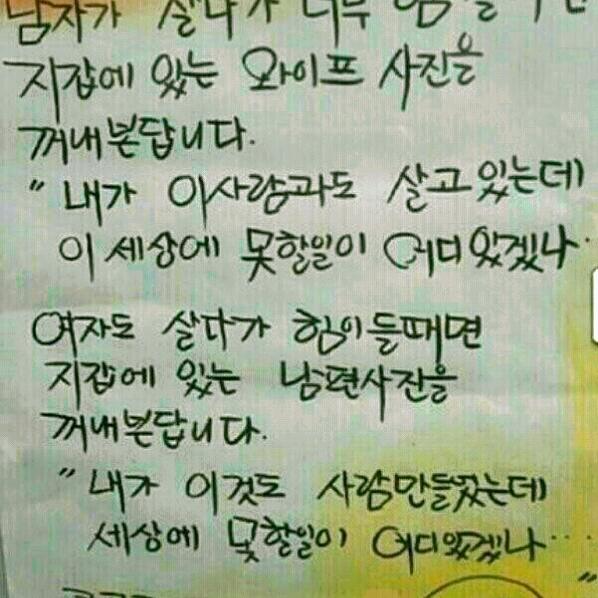 남자가 살다가 너무 힘들때면
지갑에 있는 와이프 사진을
꺼내본답니다.
"내가 이사람과도 살고있는데
이 세상에 못할일이 어디있겠나..
여자도 살다가 힘이들때면
지갑에 있는 남편사진을
꺼내본답니다.
"내가 이것도 사람만들었는데
세상에 못할일이 어디있겠나…
"